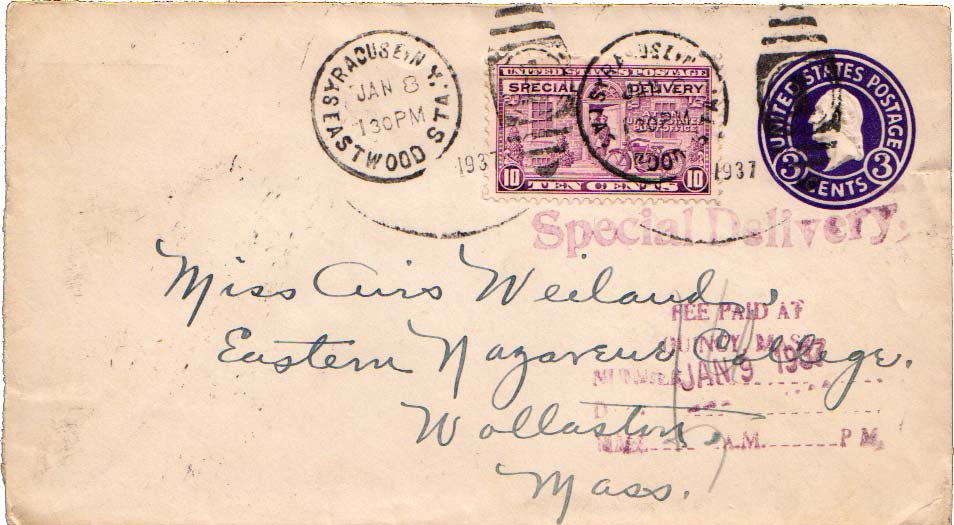 SYRACUSE, N.Y.
JAN 8
130 PM
EASTWOOD STA.
1937
UNITED STATES POSTAGE
SPECIAL DELIVERY
10 10
TEN CENTS
SYRACUSE, N.Y.
130 PM
1937
UNITED STATES POSTAGE
3 CENTS 3
Special Delivery.
Miss Airs Weiland,
Eastern Nazarene College.
Wollaston,
Mass.
FEE PAID AT
QUINCY, MASS.
NUMBER
JAN 9 1937
A.M. P.M.